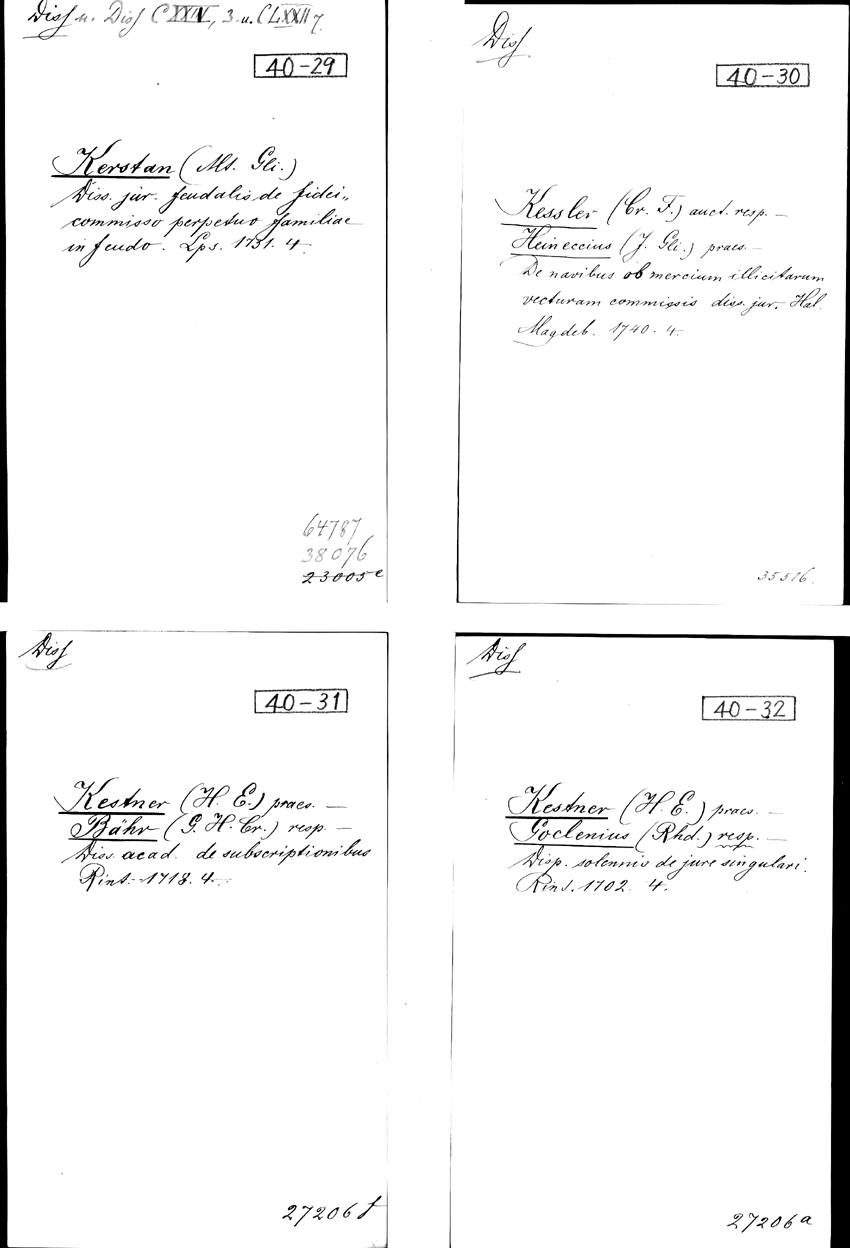 Diss u. Diss CXXIV, 3 u. CLXXII 7.
40-29
Kerstan (Mt. Gli.)
Diss. jur. feudalis de fidei„
commisso perpetuo familiae
in feudo. Lps. 1731. 4.
64787
38076
23005e
Diss
40-30
Kessler (Cr. F.) auct. resp. —
Heineccius (J. Gli.) praes. —
De navibus ob mercium illicitarum
vecturam commissis diss. jur. Hal.
Magdeb. 1740. 4.
35516.
Diss
40-31
Kestner (H. E.) praes. —
Bähr (G. H. Cr.) resp. —
Diss. acad. de subscriptionibus
Rint. 1718. 4.
27206f
Diss
40-32
Kestner (H. E.) praes. —
Goclenius (Rhd.) resp. —
Disp. solennis de jure singulari.
Rint. 1702. 4.
27206a